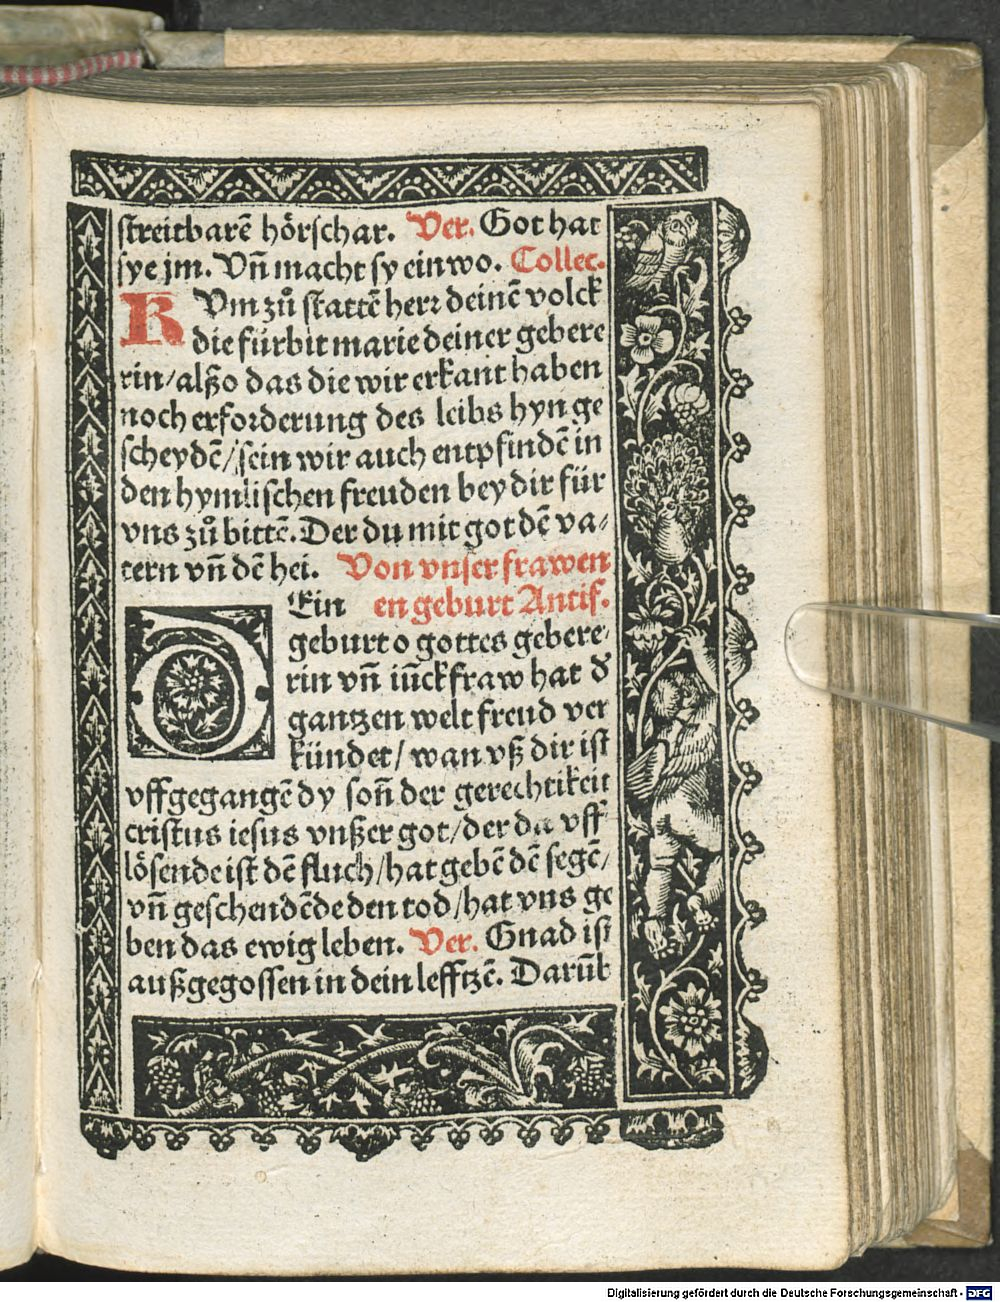 streitbarē hörschar. Ver. Got hat
sye jm. Vn̄ macht sy ein wo. Collec.
KVm zů stattē herr deinē volck
die fürbit marie deiner gebere
rin/alßo das die wir erkant haben
noch erforderung des leibs hyn ge
scheydē/sein wir auch entpfindē in
den hymlischen freuden bey dir für
vns zů bittē. Der du mit got dē va⸗
tern vn̄ dē hei. Von vnser frawen
DEin en geburt Antif.
geburt o gottes gebere⸗
rin vn̄ iūckfraw hat d̕
gantzen welt freud ver
kündet/ wan vß dir ist
vffgegangē dy son̄ der gerechtikeit
cristus iesus vnßer got/der da vff
lösende ist dē fluch/hat gebē dē segē/
vn̄ geschendēde den tod/hat vns ge
ben das ewig leben. Ver. Gnad ist
außgegossen in dein lefftzē. Darūb
Digitalisierung gefördert durch die Deutsche Forschungsgemeinschaft - DFG